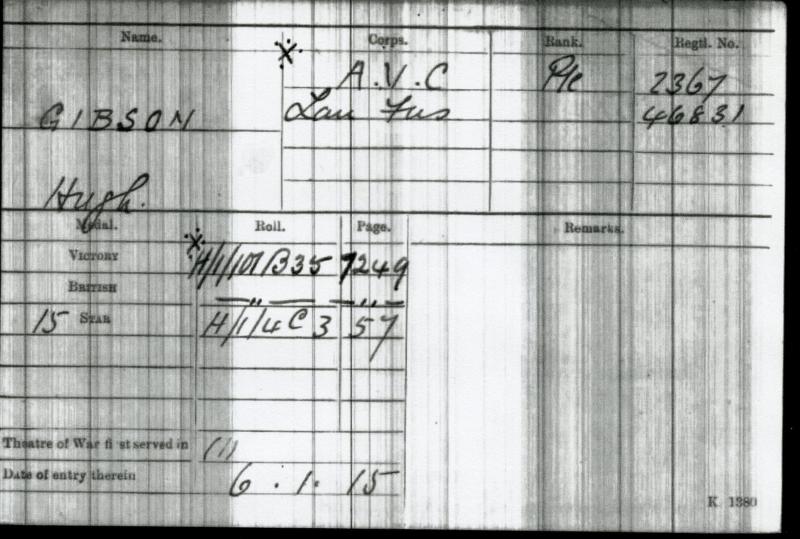 Name. Corps. Rank. Regtl. No.
※ A.V.C Pte 2367
GIBSON Lan Fus 46831
Hugh.
Medal. Roll. Page. Remarks.
VICTORY ※ H/1/101B35 7249
BRITISH — " — — " —
15 STAR H/1/4C3 57
Theatre of War first served in (1)
Date of entry therein 6.1.15
K 1380